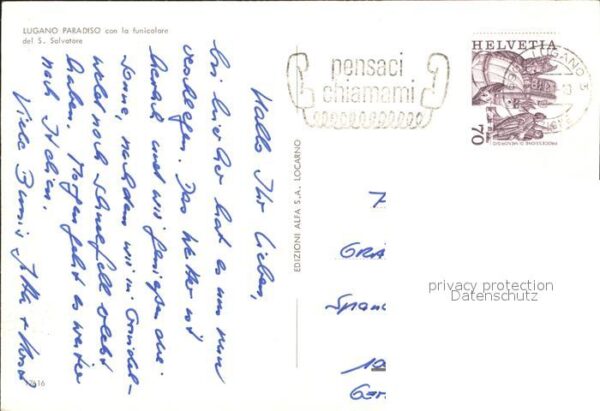 LUGANO PARADISO con la funicolare
del S. Salvatore
Hallo Ihr Lieben,
bis hierher hat es uns nun
verschlagen. Das Wetter ist
herrlich und wir genießen die
Sonne, nachdem wir in Grindel-
wald noch Schneefall erlebt
haben. Morgen geht es weiter
nach Italien.
Viele Bussis Jutta + Horst
12616
EDIZIONI ALFA S.A. LOCARNO
pensaci
chiamami
LUGANO 3
HELVETIA
70
PROCESSIONE DI MENDRISIO
GRÄ
Span
10
Ger
privacy protection
Datenschutz